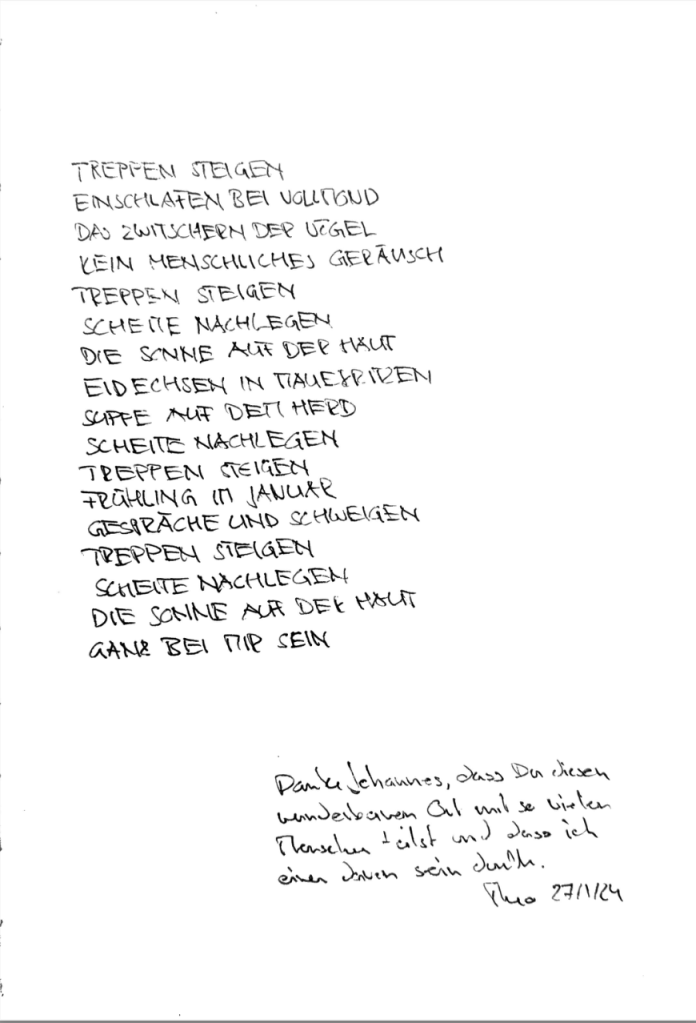 TREPPEN STEIGEN
EINSCHLAFEN BEI VOLLMOND
DAS ZWITSCHERN DER VÖGEL
KEIN MENSCHLICHES GERÄUSCH
TREPPEN STEIGEN
SCHEITE NACHLEGEN
DIE SONNE AUF DER HAUT
EIDECHSEN IN MAUERRITZEN
SUPPE AUF DEM HERD
SCHEITE NACHLEGEN
TREPPEN STEIGEN
FRÜHLING IM JANUAR
GESPRÄCHE UND SCHWEIGEN
TREPPEN STEIGEN
SCHEITE NACHLEGEN
DIE SONNE AUF DER HAUT
GANZ BEI MIR SEIN
Danke Johannes, dass Du diesen
wunderbaren Ort mit so vielen
Menschen teilst und dass ich
einer davon sein durfte.
Theo 27/1/24